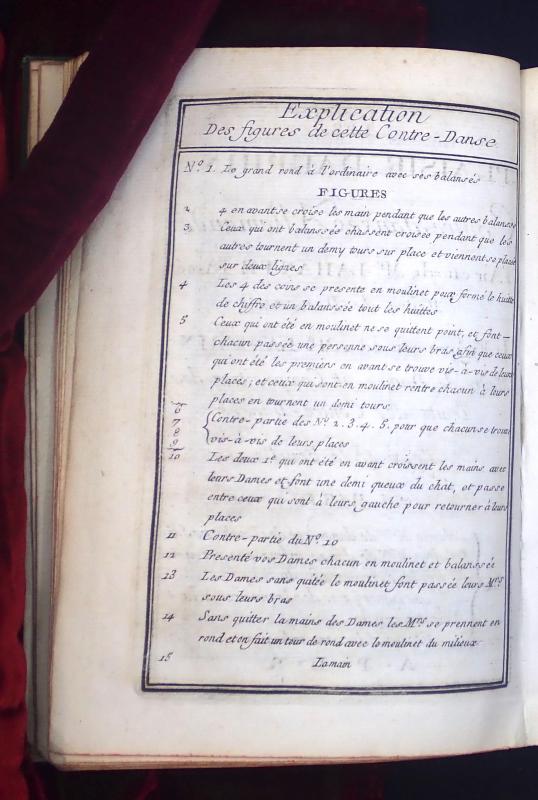 Explication
Des figures de cette Contre-Danse
N.º 1. Le grand rond a l'ordinaire avec ses balansés
FIGURES
2 4 en avant se croise les main pendant que les autres balansse
3 Ceux qui ont balanssée chassent croisée pendant que les
autres tournent un demy tours sur place et viennent se
sur deux lignes
4 Les 4 des coins se presente en moulinet poux formé le huitte
de chiffre et un balanssée tout les huittes
5 Ceux qui ont été en moulinet ne se quittent point, et font —
chacun passée une personne sous leurs bras afin que ceux
qui ont été les premiers en avant se trouve vis-à-vis de leurs
places; et ceux qui sont en moulinet rentre chacun à leurs
places en tournent un demi tours
6
7 Contre-partie des Nº 2. 3. 4. 5. pour que chacun se trouve
8 vis-à-vis de leurs places
9
10 Les deux 1e qui ont été en avant croissent les mains avec
leurs Dames et font une demi queux du chat, et passe
entre ceux qui sont à leurs gauche pour retourner à leurs
places
11 Contre-partie du Nº 10
12 Presenté vos Dames chacun en moulinet et balanssée
13 Les Dames sans quitté le moulinet font passée leurs Mrs
sous leurs bras
14 Sans quitter la mains des Dames les Mrs se prennent en
rond et on fait un tour de rond avec le moulinet du milieux
15 La main